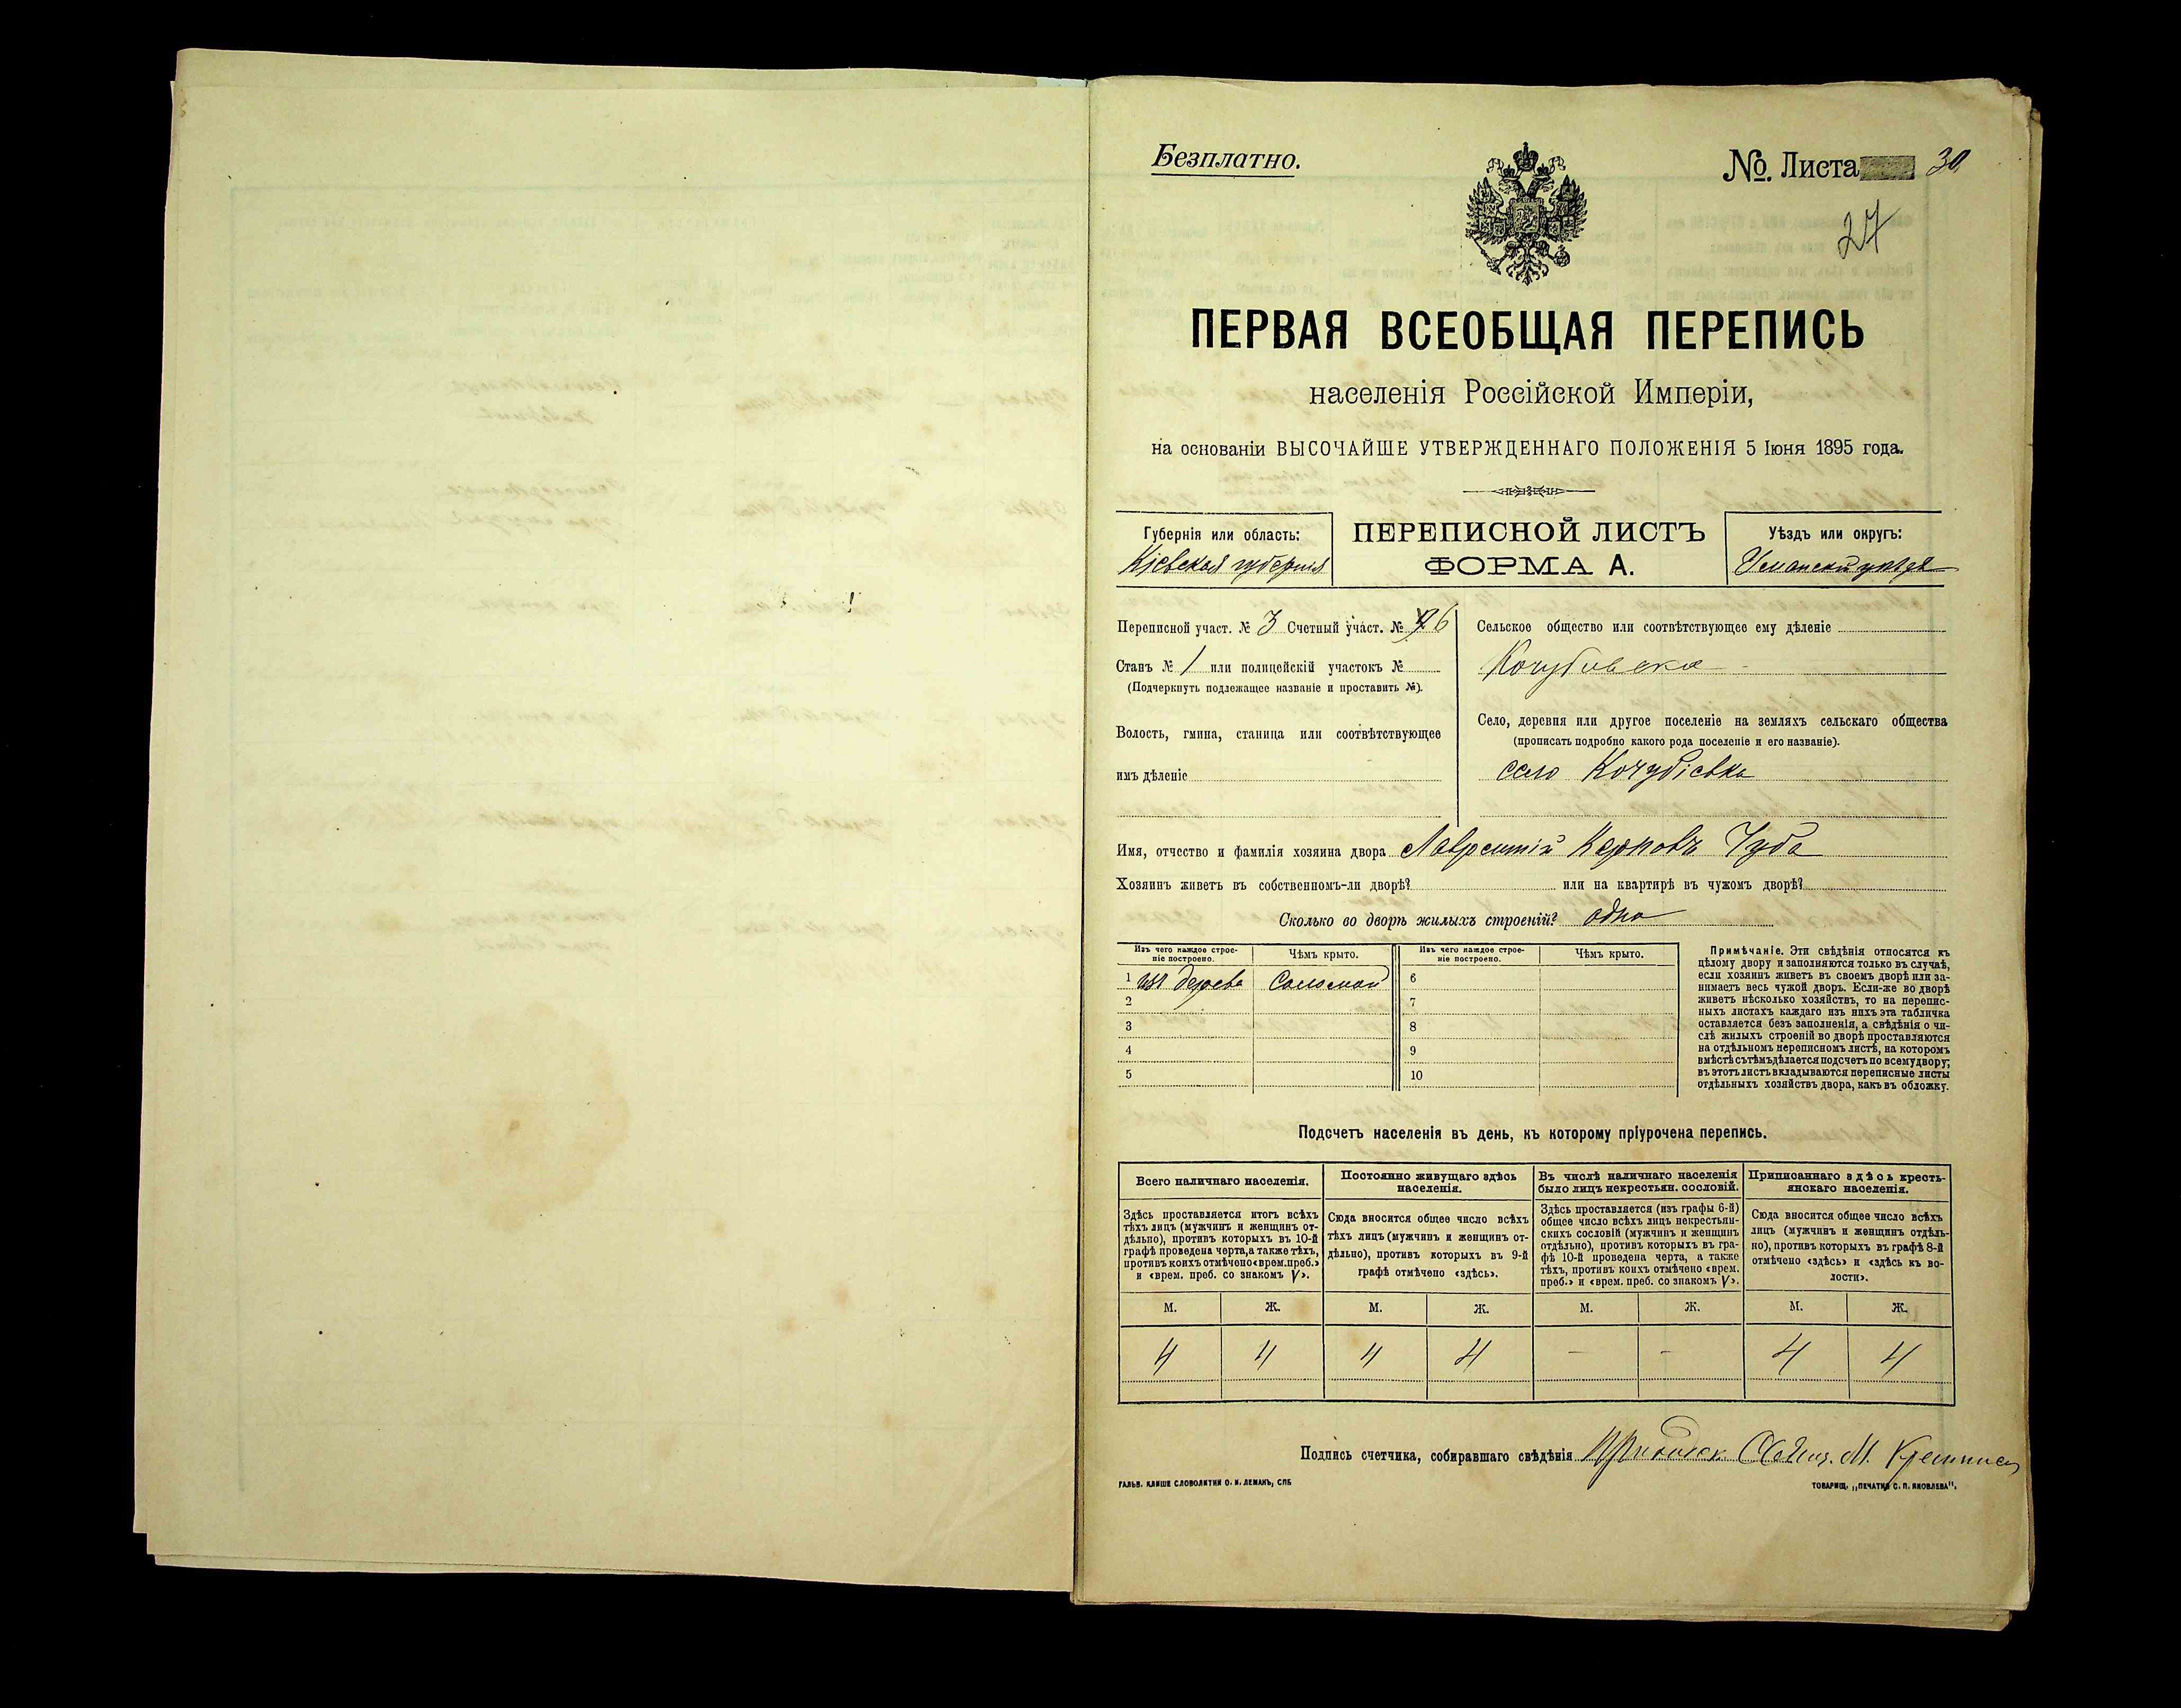 Безплатно.
№. Листа 30
27
ПЕРВАЯ ВСЕОБЩАЯ ПЕРЕПИСЬ
населенія Россійской Имперіи,
на основаніи ВЫСОЧАЙШЕ УТВЕРЖДЕННАГО ПОЛОЖЕНІЯ 5 Іюня 1895 года.
Губернія или область:
Кіевская губернія
ПЕРЕПИСНОЙ ЛИСТЪ
ФОРМА А.
Уѣздъ или округъ:
Уманскій уѣздъ
Переписной участ. № 3 Счетный участ. № 6
Станъ № 1 или полицейскій участокъ №
(Подчеркнуть подлежащее названіе и проставить №).
Волость, гмина, станица или соотвѣтствующее
имъ дѣленіе
Сельское общество или соотвѣтствующее ему дѣленіе
Село, деревня или другое поселеніе на земляхъ сельскаго общества
(прописать подробно какого рода поселеніе и его названіе).
село Кочубіевка
Имя, отчество и фамилія хозяина двора Лаврентій Карповъ Чуба
Хозяинъ живетъ въ собственномъ-ли дворѣ? или на квартирѣ въ чужомъ дворѣ?
Сколько во дворѣ жилыхъ строеній? одно
Изъ чего каждое строе-
ніе построено.
Чѣмъ крыто.
Изъ чего каждое строе-
ніе построено.
Чѣмъ крыто.
1 изъ дерева Соломой 6
2 7
3 8
4 9
5 10
Примѣчаніе. Эти свѣдѣнія относятся къ
цѣлому двору и заполняются только въ случаѣ,
если хозяинъ живетъ въ своемъ дворѣ или за-
нимаетъ весь чужой дворъ. Если-же во дворѣ
живетъ нѣсколько хозяйствъ, то на перепис-
ныхъ листахъ каждаго изъ нихъ эта табличка
оставляется безъ заполненія, а свѣдѣнія о чи-
слѣ жилыхъ строеній во дворѣ проставляются
на отдѣльномъ переписномъ листѣ, на которомъ
вмѣстѣ съ тѣмъ дѣлается подсчетъ по всему двору;
въ этотъ листъ вкладываются переписные листы
отдѣльныхъ хозяйствъ двора, какъ въ обложку.
Подсчетъ населенія въ день, къ которому пріурочена перепись.
Всего наличнаго населенія.
Здѣсь проставляется итогъ всѣхъ
тѣхъ лицъ (мужчинъ и женщинъ от-
дѣльно), противъ которыхъ въ 10-й
графѣ проведена черта, а также тѣхъ,
противъ коихъ отмѣчено «врем. преб.»
и «врем. преб. со знакомъ V».
Постоянно живущаго здѣсь
населенія.
Сюда вносится общее число всѣхъ
тѣхъ лицъ (мужчинъ и женщинъ от-
дѣльно), противъ которыхъ въ 9-й
графѣ отмѣчено «здѣсь».
Въ числѣ наличнаго населенія
было лицъ некрестьян. сословій.
Здѣсь проставляется (изъ графы 6-й)
общее число всѣхъ лицъ некрестьян-
скихъ сословій (мужчинъ и женщинъ
отдѣльно), противъ которыхъ въ гра-
фѣ 10-й проведена черта, а также
тѣхъ, противъ коихъ отмѣчено «врем.
преб.» и «врем. преб. со знакомъ V».
Приписаннаго здѣсь кресть-
янскаго населенія.
Сюда вносится общее число всѣхъ
лицъ (мужчинъ и женщинъ отдѣль-
но), противъ которыхъ въ графѣ 8-й
отмѣчено «здѣсь» и «здѣсь къ во-
лости».
М. Ж. М. Ж. М. Ж. М. Ж.
4 4 4 4 – – 4 4
Подпись счетчика, собиравшаго свѣдѣнія
ГАЛЬВ. КЛИШЕ СЛОВОЛИТНИ О. И. ЛЕМАНЪ, СПБ
ТОВАРИЩ. „ПЕЧАТНЯ С. П. ЯКОВЛЕВА".